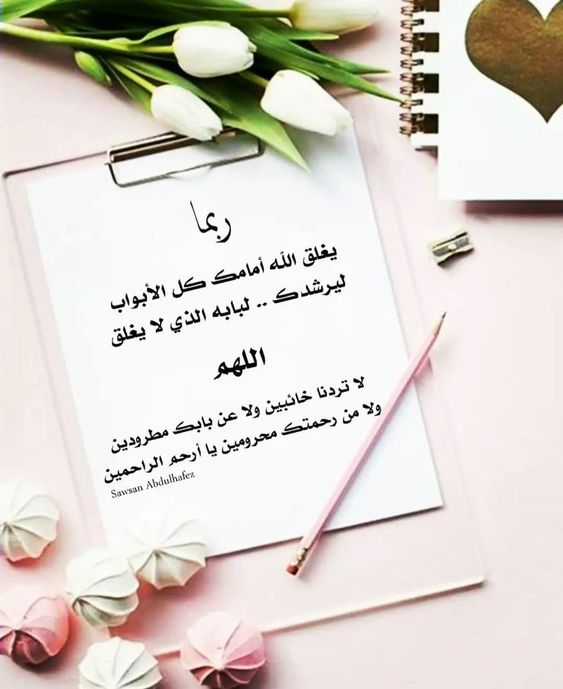 ربما
يغلق الله أمامك كل الأبواب
ليرشدك .. لبابه الذي لا يغلق
اللهم
لا تردنا خائبين ولا عن بابك مطرودين
ولا من رحمتك محرومين يا أرحم الراحمين
Sawsan Abdulhafez